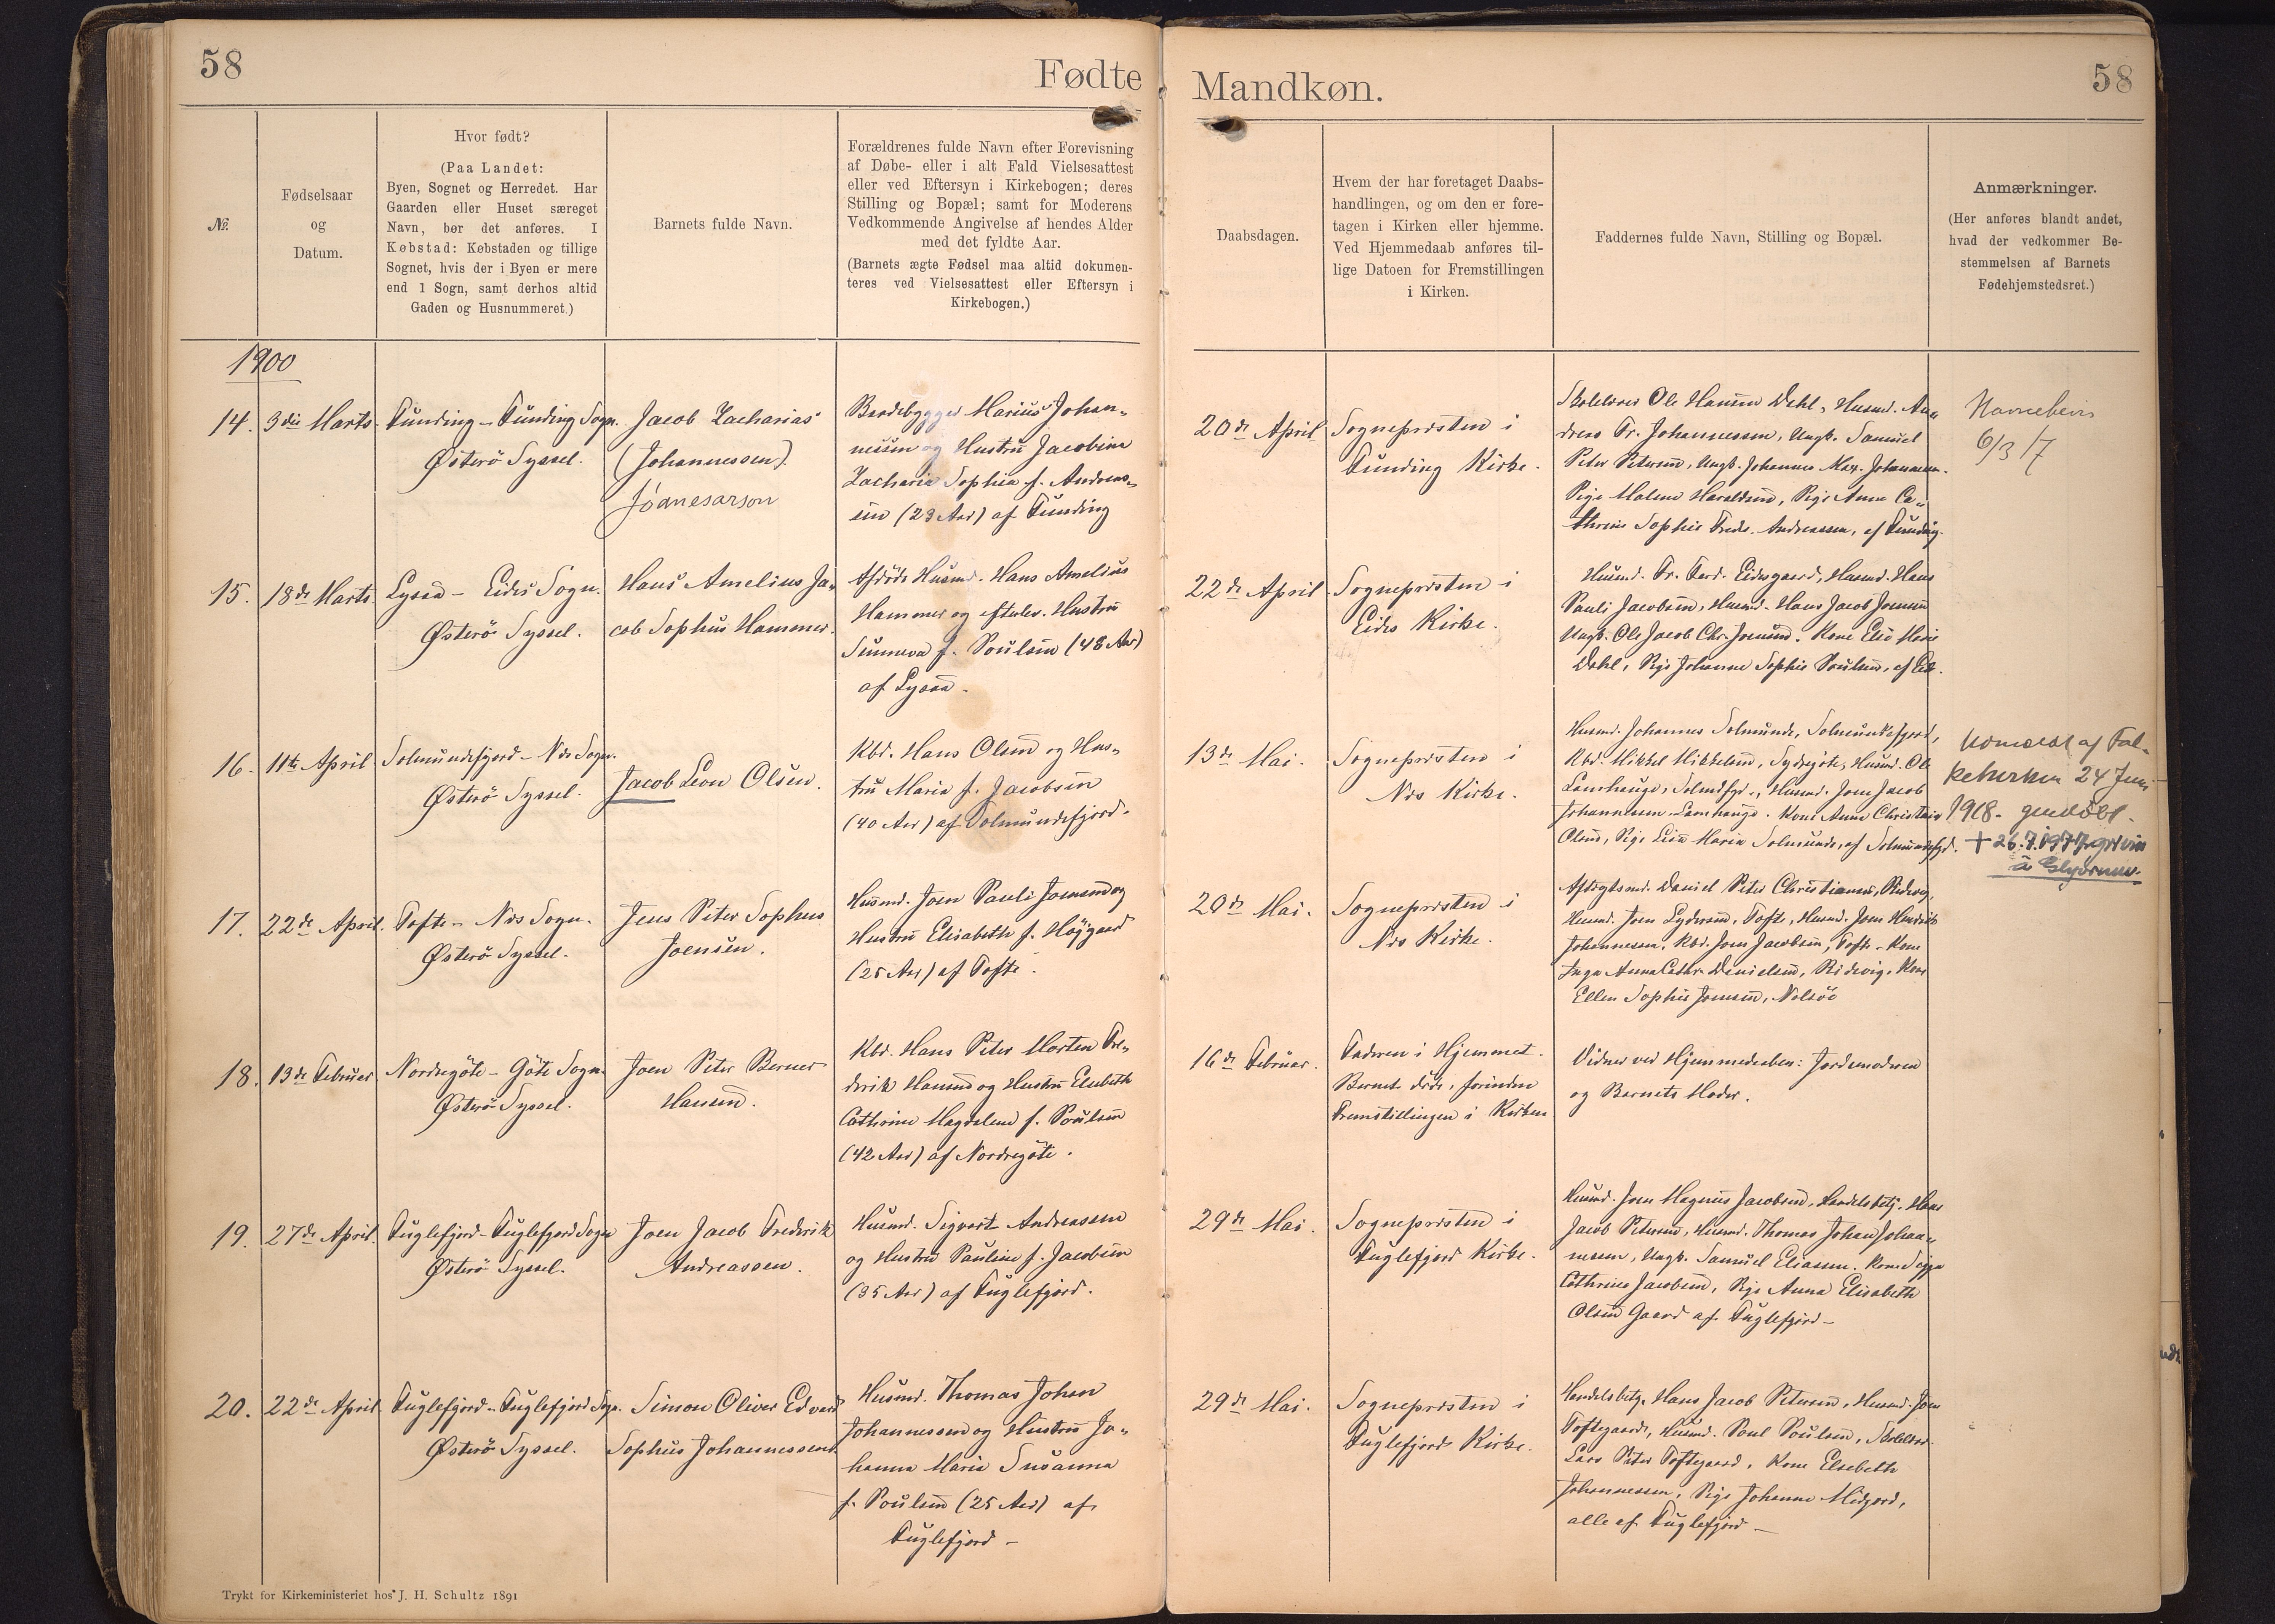 58
Fødte
Mandkøn.
58
№.
Fødselsaar
og
Datum.
Hvor født?
(Paa Landet:
Byen, Sognet og Herredet. Har
Gaarden eller Huset særeget
Navn, bør det anføres. I
Købstad: Købstaden og tillige
Sognet, hvis der i Byen er mere
end 1 Sogn, samt derhos altid
Gaden og Husnummeret.)
Barnets fulde Navn.
Forældrenes fulde Navn efter Forevisning
af Døbe- eller i alt Fald Vielsesattest
eller ved Eftersyn i Kirkebogen; deres
Stilling og Bopæl; samt for Moderens
Vedkommende Angivelse af hendes Alder
med det fyldte Aar.
(Barnets ægte Fødsel maa altid dokumen-
teres ved Vielsesattest eller Eftersyn i
Kirkebogen.)
Daabsdagen.
Hvem der har foretaget Daabs-
handlingen, og om den er fore-
tagen i Kirken eller hjemme.
Ved Hjemmedaab anføres til-
lige Datoen for Fremstillingen
i Kirken.
Faddernes fulde Navn, Stilling og Bopæl.
Anmærkninger.
(Her anføres blandt andet,
hvad der vedkommer Be-
stemmelsen af Barnets
Fødehjemstedsret.)
1900
14.
3die Marts.
Funding - Funding Sogn.
Østerö Syssel.
Jacob Zacharias
(Johannessen)
Jóanesarson
Baadebygger Marius Johan-
nessen og Hustru Jacobine
Zacharia Sophia f. Andreas-
sen (23 Aar) af Funding
20de April
Sognepræsten i
Funding Kirke.
Skolelærer Ole Hansen Dahl, Husmd. An-
dreas Fr. Johannessen, Ungk. Samuel
Peter Petersen, Ungk. Johannes Max. Johannesen.
Pige Malene Haraldsen, Pige Anna Ca-
thrine Sophie Fredr. Andreassen, af Funding.
Navnebevis
6/3 17
15.
18de Marts.
Lyraa - Eides Sogn.
Østerö Syssel.
Hans Amelius Ja-
cob Sophus Hammer.
Afdöde Husmd. Hans Amelius
Hammer og efterlev. Hustru
Sunneva f. Poulsen (43 Aar)
af Lyraa.
22de April
Sognepræsten i
Eides Kirke.
Husmd. Fr. Ferd. Eidesgaard, Husmd. Hans
Pauli Jacobsen, Husmd. Hans Jacob Joensen
Ungk. Ole Jacob Chr. Joensen. Kone Elsb Marie
Dahl, Pige Johanne Sophie Poulsen, af Eide.
16.
11te April
Solmundefjord - Næs Sogn.
Østerö Syssel.
Jacob Leon Olsen.
Kbd. Hans Olsen og Hus-
tru Maria f. Jacobsen
(40 Aar) af Solmundefjord.
13de Mai.
Sognepræsten i
Næs Kirke.
Husmd. Johannes Solmunde, Solmundefjord,
Kbd. Mikkel Mikkelsen, Sydregöte, Husmd. Ole
Lamhauge, Solmdfjd., Husmd. Joen Jacob
Johannesen, Lamhauge. Kone Anne Christine
Olsen, Pige Lisa Maria Solmunde, af Solmundefjd.
Udmeldt af Fol-
kekirken 24 Juni
1918. gendöbt.
+ 26.7.1977. grivin
á Glyvrum.
17.
22de April.
Tofte - Næs Sogn.
Østerö Syssel.
Jens Peter Sophus
Joensen.
Husmd. Joen Pauli Joensen og
Hustru Elisabeth f. Höjgaard
(25 Aar) af Tofte.
20de Mai.
Sognepræsten i
Næs Kirke.
Aftægtsmd. Daniel Peter Christiansen, Ridevig,
Husmd. Joen Lydersen, Tofte, Husmd. Joen Hendrik
Johannesen, Kbd. Joen Jacobsen, Tofte. Kone
Inga Anna Cathr. Danielsen, Ridevig, Kone
Ellen Sophie Joensen, Nolsöe
18.
13de Februar
Nordregöte - Göte Sogn.
Østerö Syssel.
Joen Peter Berner
Hansen.
Kbd. Hans Peter Morten Fre-
derik Hansen og Hustru Elsebeth
Cathrine Magdalene f. Poulsen
(42 Aar) af Nordregöte.
16de Februar.
Faderen i Hjemmet.
Barnet döde, forinden
Fremstillingen i Kirken
Vidner ved Hjemmedaaben: Jordemoderen
og Barnets Moder.
19.
27de April.
Fuglefjord - Fuglefjord Sogn
Østerö Syssel.
Joen Jacob Frederik
Andreassen.
Husmd. Sigvart Andreassen
og Hustru Pauline f. Jacobsen
(35 Aar) af Fuglefjord.
29de Mai.
Sognepræsten i
Fuglefjord Kirke.
Husmd. Joen Magnus Jacobsen, Handelsbetj. Hans
Jacob Petersen, Husmd. Thomas Johan Johan-
nessen, Ungk. Samuel Eliasen. Kone Sigga
Cathrine Jacobsen, Pige Anna Elisabeth
Olsen Gaard af Fuglefjord -
20.
22de April
Fuglefjord - Fuglefjord Sogn.
Østerö Syssel.
Simon Oliver Edvard
Sophus Johannessen.
Husmd. Thomas Johan
Johannessen og Hustru Jo-
hanna Maria Susanna
f. Poulsen (25 Aar) af
Fuglefjord -
29de Mai.
Sognepræsten i
Fuglefjord Kirke.
Handelsbetj. Hans Jacob Petersen, Husmd. Joen
Toftegaard, Husmd. Poul Poulsen, Skolelær.
Lars Peter Toftegaard, Kone Elsebeth
Johannessen, Pige Johanne Midjord,
alle af Fuglefjord -
Trykt for Kirkeministeriet hos J. H. Schultz 1891